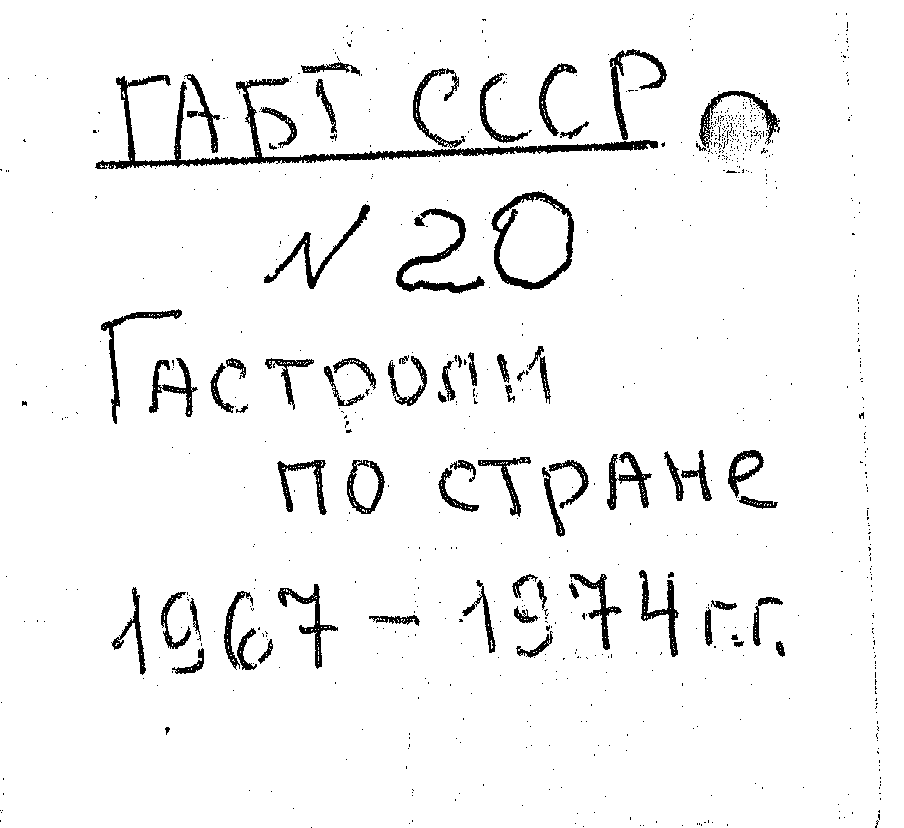 ГАБТ СССР
N 20
Гастроли
по стране
1967 - 1974 г.г.